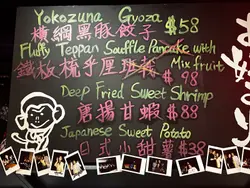 Yokozuna Gyoza $58
橫綱黑豚餃子
Fluffy Teppan Souffle Pancake with
Mix fruit
鐵板梳乎厘班戟 $98
Deep Fried Sweet Shrimp
唐揚甘蝦 $88
Japanese Sweet Potato
日式小甜薯 $38